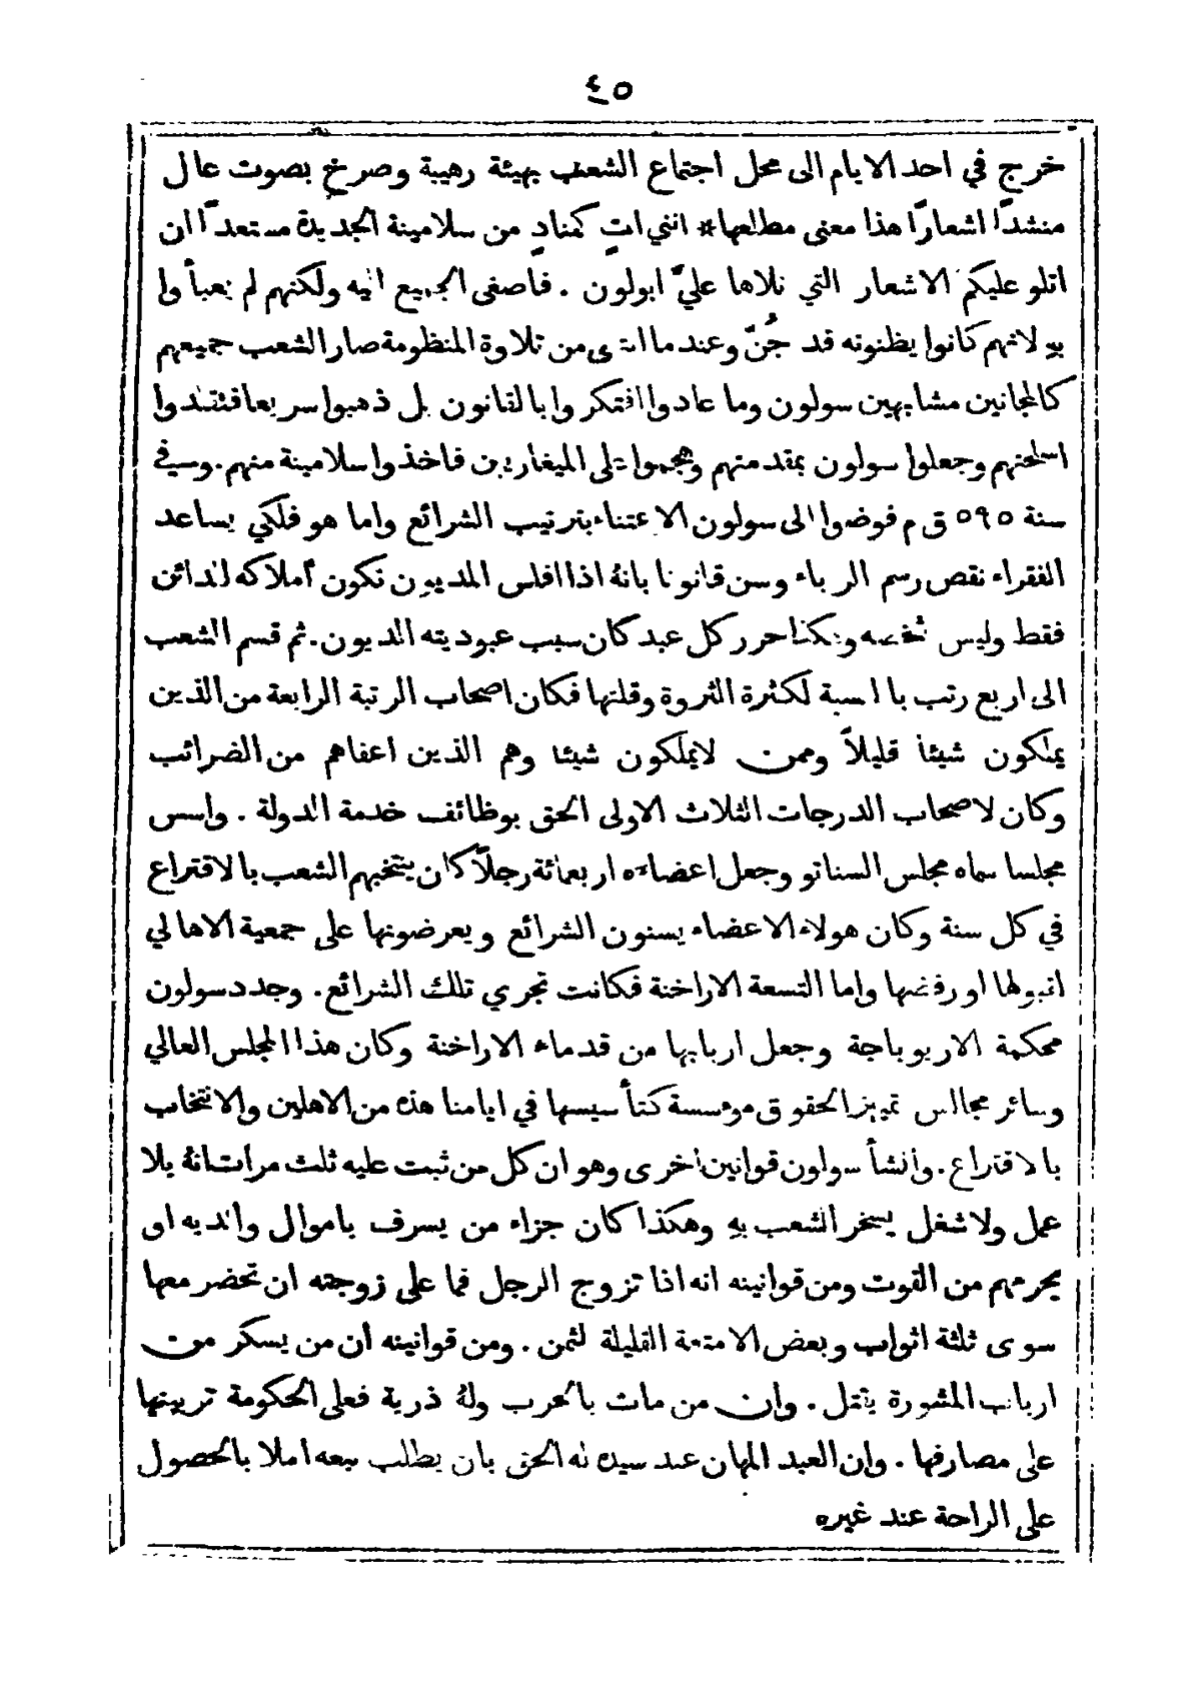 ٤٥
خرج في احد الايام الى محل اجتماع الشعب بهيئة رهيبة وصرخ بصوت عال
منشدًا اشعارًا هذا معنى مطلعها* انني اتٍ كمنادٍ من سلامينة الجديدة مستعدًا ان
اتلو عليكم الاشعار التي تلاها عليَّ ابولون . فاصغى الجميع اليه ولكنهم لم يعبأوا
بهِ لانهم كانوا يظنونه قد جُنَّ وعندما انتهى من تلاوة المنظومة صار الشعب جميعهم
كالمجانين مشابهين سولون وما عادوا افتكروا بالقانون بل ذهبوا سريعا فتقلدوا
اسلحتهم وجعلوا سولون بمقدمتهم وهجموا على الميغاريين فاخذوا سلامينة منهم. وفي
سنة ٥٩٥ ق م فوضوا الى سولون الاعتناء بترتيب الشرائع واما هو فلكي يساعد
الفقراء نقص رسم الرباء وسن قانونا بانهُ اذا افلس المديون تكون أملاكه للدائن
فقط وليس شخصه وهكذا حرر كل عبد كان سبب عبوديته الديون. ثم قسم الشعب
الى اربع رتب بالنسبة لكثرة الثروة وقلتها فكان اصحاب الرتبة الرابعة من الذين
يملكون شيئا قليلاً وممن لايملكون شيئا وهم الذين اعفاهم من الضرائب
وكان لاصحاب الدرجات الثلاث الاولى الحق بوظائف خدمة الدولة . واسس
مجلسا سماه مجلس السناتو وجعل اعضاءه اربعمائة رجلاً كان ينتخبهم الشعب بالاقتراع
في كل سنة وكان هولاء الاعضاء يسنون الشرائع ويعرضونها على جمعية الاهالي
لقبولها او رفضها واما التسعة الاراخنة فكانت تجري تلك الشرائع. وجدد سولون
محكمة الاريوباجة وجعل اربابها من قدماء الاراخنة وكان هذا المجلس العالي
وسائر مجالس تمييز الحقوق موسسة كتأسيسها في ايامنا هذه من الاهلين والانتخاب
بالاقتراع. وانشأ سولون قوانين اخرى وهو ان كل من ثبت عليه ثلث مرات انهُ بلا
عمل ولا شغل يسخر الشعب بهِ وهكذا كان جزاء من يسرف باموال والديه او
يحرمهم من القوت ومن قوانينه انه اذا تزوج الرجل فما على زوجته ان تحضر معها
سوى ثلثة اثواب وبعض الامتعة القليلة الثمن . ومن قوانينه أن من يسكر من
ارباب المشورة يقتل . وان من مات بالحرب ولهُ ذرية فعلى الحكومة تربيتها
على مصارفها . وان العبد المهان عند سيده له الحق بان يطلب بيعه املا بالحصول
على الراحة عند غيره